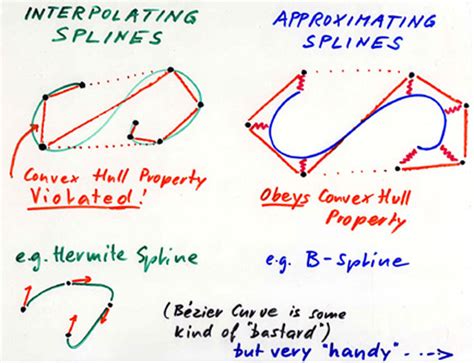 INTERPOLATING
SPLINES
Convex Hull Property
Violated!
e.g. Hermite Spline
APPROXIMATING
SPLINES
Obeys Convex Hull
Property
e.g. B-Spline
(Bézier Curve is some
kind of "bastard")
but very "handy" --->